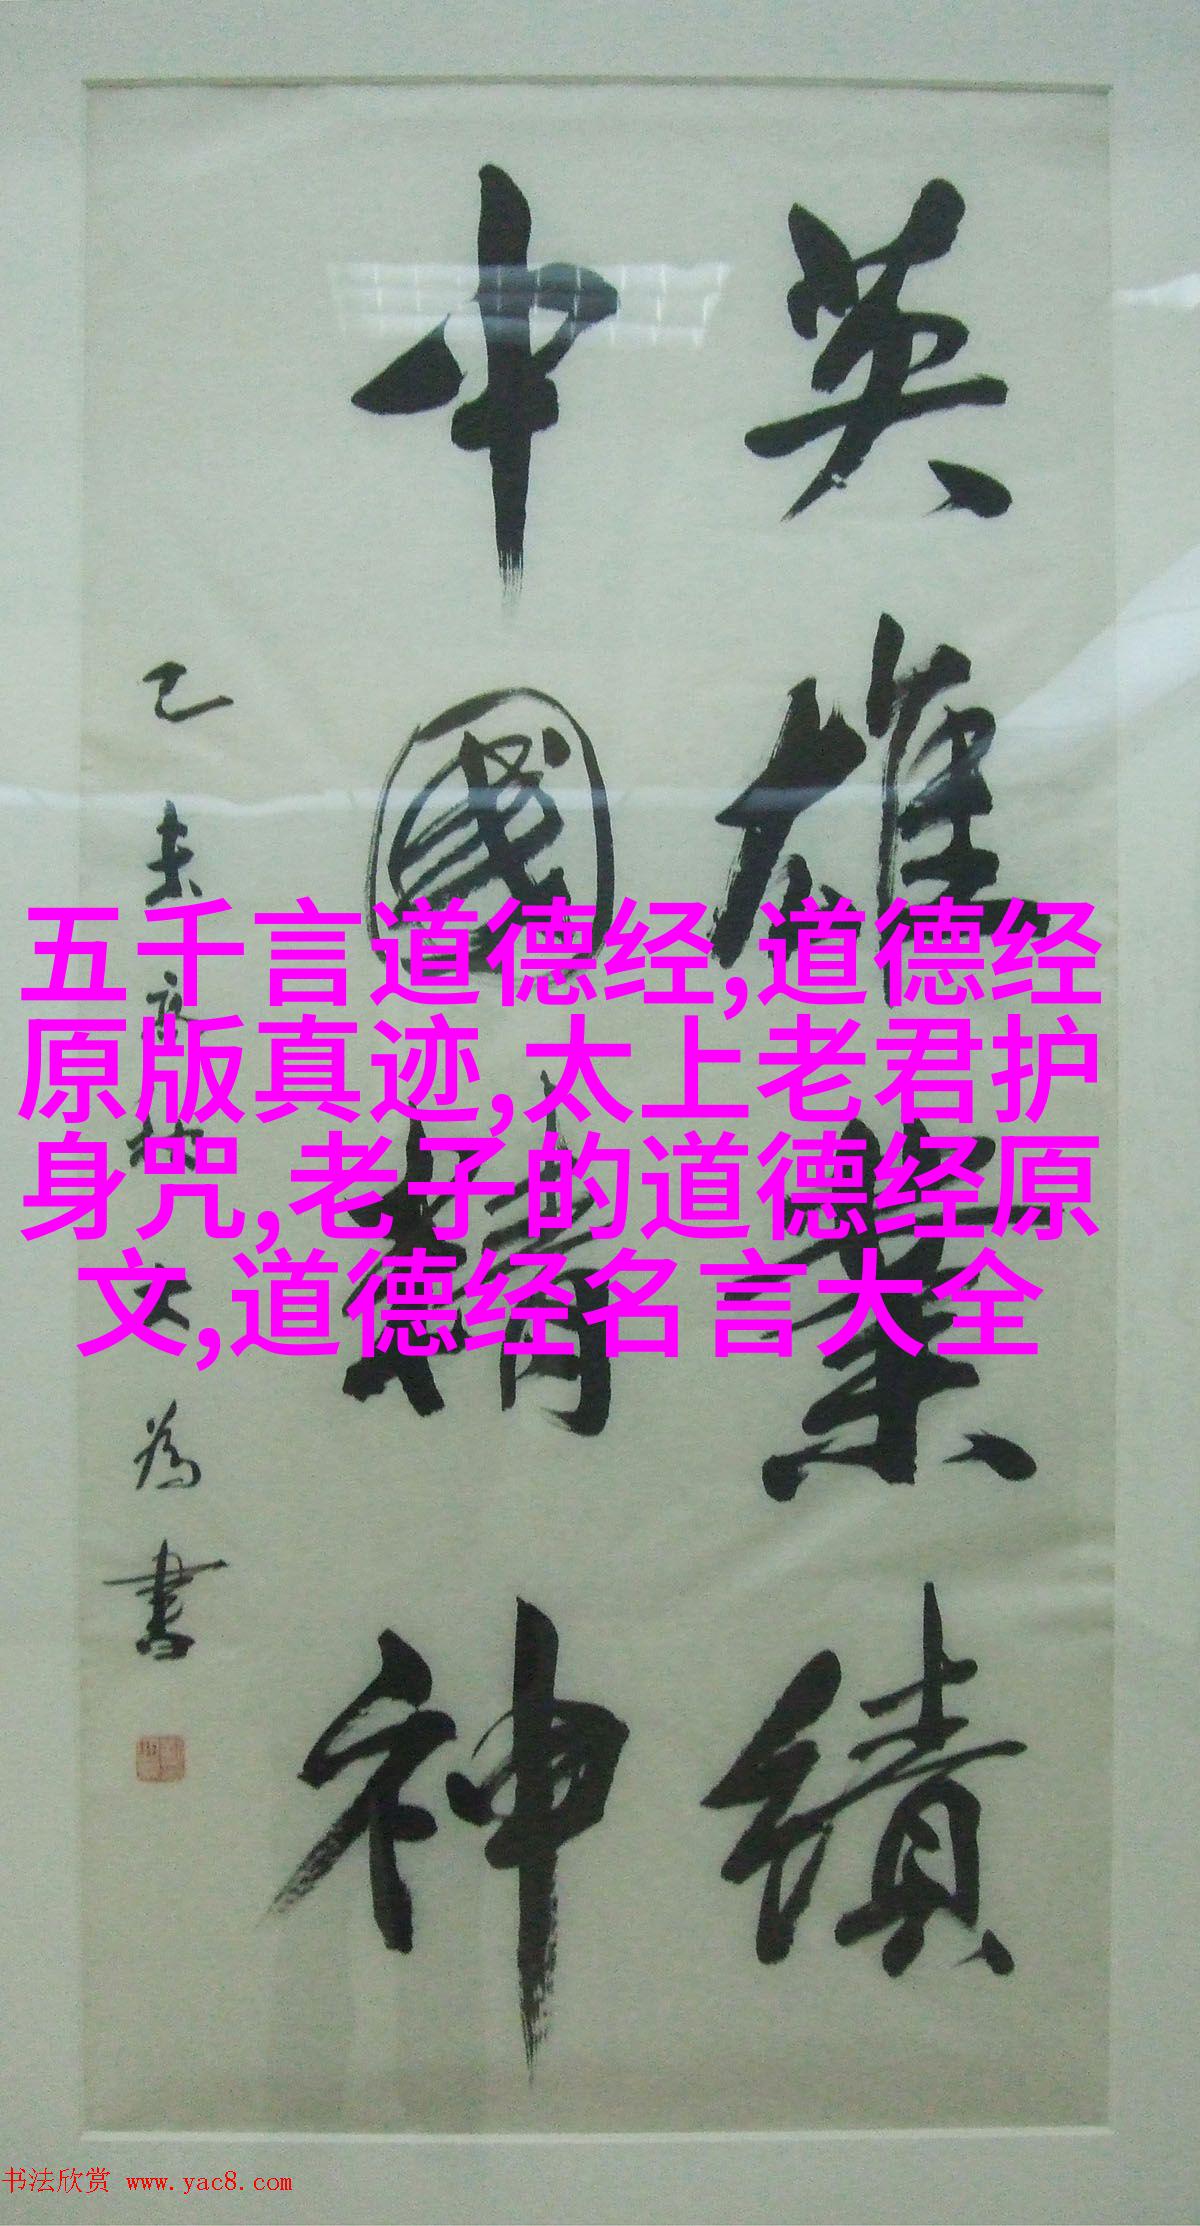 英雄業績
中國精神
己未
大為書
五千言道德经,道德经
原版真迹,太上老君护
身咒,老子的道德经原
文,道德经名言大全
书法欣赏 www.yac8.com